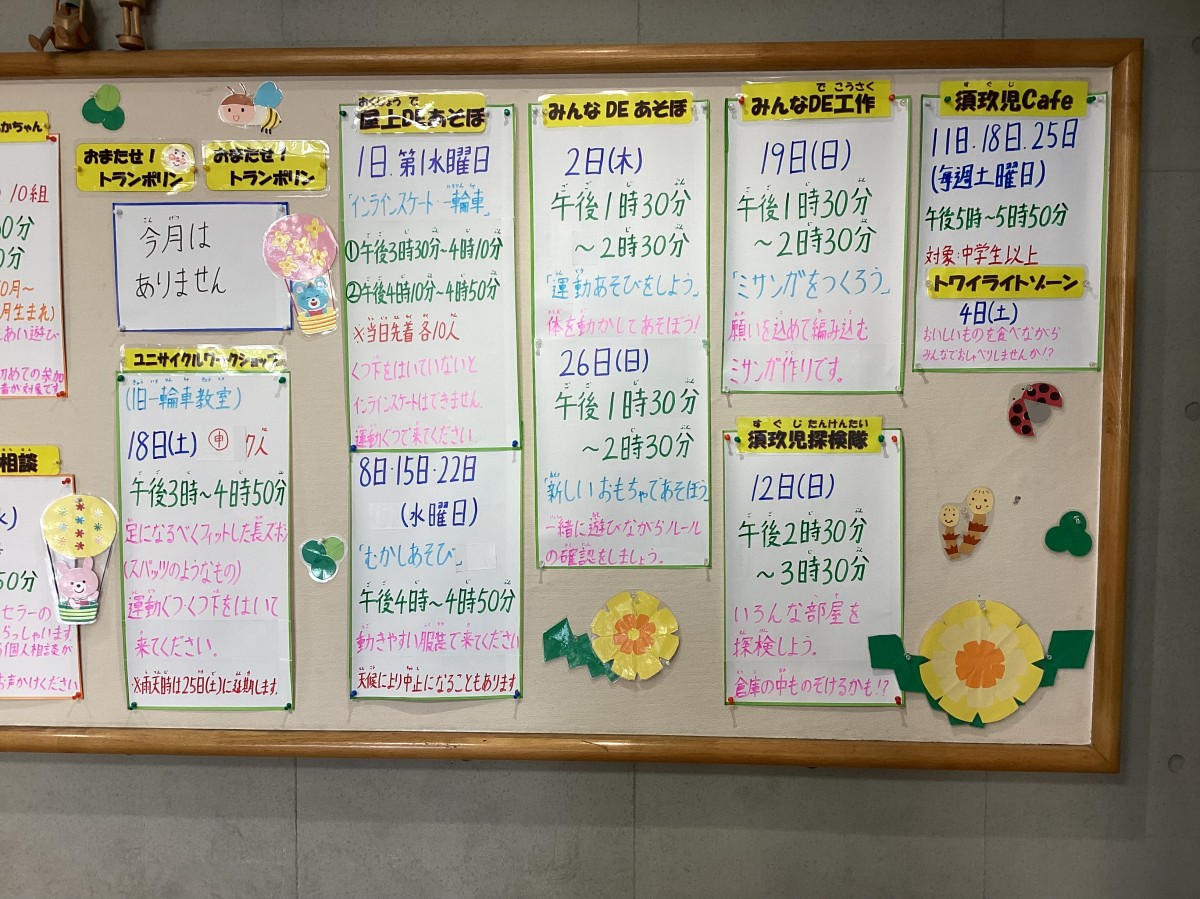 かちゃん
10組
0分
0分
0月～
月生まれ)
あい遊び
初めての参加
相談
50分
セラーの
らっしゃいます
個人相談が
お声かけください
おまたせ！
トランポリン
おまたせ！
トランポリン
こん げつ
今月は
ありません
ユニサイクルワークショップ
(旧一輪車教室)
18日(土) 申 7人
午後3時～4時50分
足になるべくフィットした長ズボン
(スパッツのようなもの)
運動ぐつくつ下をはいて
来てください.
※雨天時は25日(土)に延期します.
おくじょう で
屋上DEあそぼ
1日.第1水曜日
「インラインスケート・一輪車」
①午後3時30分～4時10分
②午後4時10分～4時50分
※当日先着 各10人
くつ下をはいていないと
インラインスケートはできません.
運動ぐつで来てください
8日・15日・22日
(水曜日)
「むかしあそび」
午後4時～4時50分
動きやすい服装で来てください
天候により中止になることもあります.
みんな DE あそぼ
2日(木)
午後1時30分
～2時30分
「運動あそびをしよう」
体を動かしてあそぼう！
26日(日)
午後1時30分
～2時30分
「新しいおもちゃであそぼう」
一緒に遊びながらルール
の確認をしましょう.
で こうさく
みんなDE工作
19日(日)
午後1時30分
～2時30分
「ミサンガをつくろう」
願いを込めて編み込む
ミサンガ作りです.
すぐじ たんけんたい
須玖児探検隊
12日(日)
午後2時30分
～3時30分
いろんな部屋を
探検しよう.
倉庫の中ものぞけるかも!?
すぐじ
須玖児Cafe
11日.18日.25日
(毎週土曜日)
午後5時～5時50分
対象:中学生以上
トワイライトゾーン
4日(土)
おいしいものを食べながら
みんなでおしゃべりしませんか!?